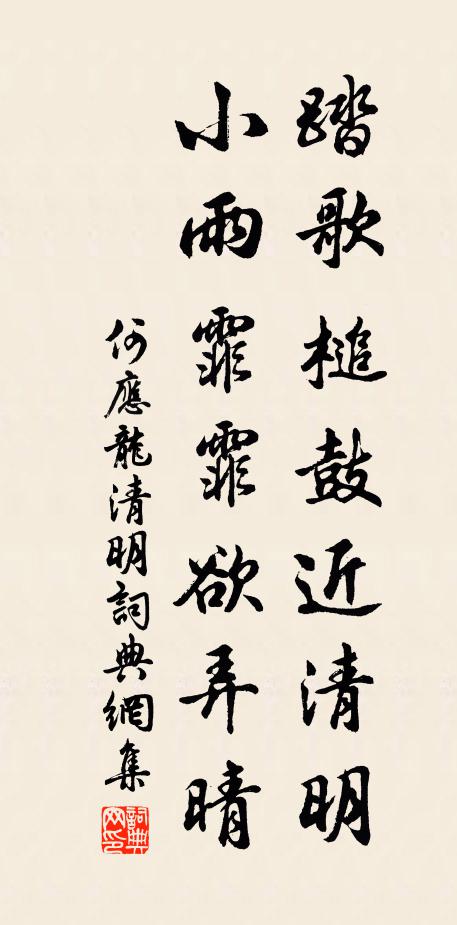 踏歌槌鼓近清明
小雨霏霏欲弄晴
何應龍清明詞典網集
詞典網印